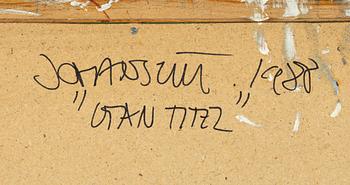 JOHANSSON. 1988
"UTAN TITEL"